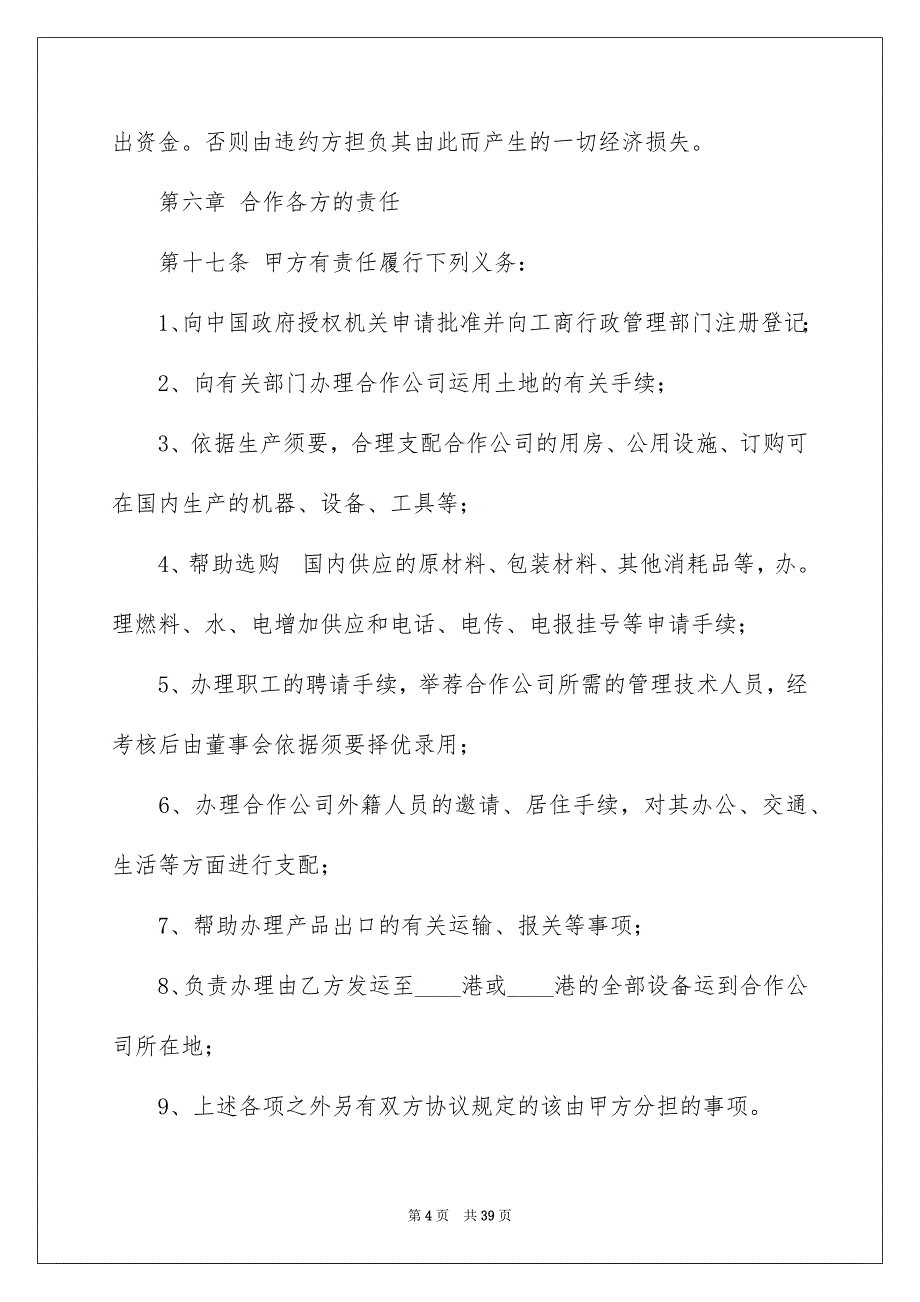 出资金。否则由违约方担负其由此而产生的一切经济损失。
第六章 合作各方的责任
第十七条 甲方有责任履行下列义务：
1、向中国政府授权机关申请批准并向工商行政管理部门注册登记；
2、向有关部门办理合作公司运用土地的有关手续；
3、依据生产须要，合理支配合作公司的用房、公用设施、订购可
在国内生产的机器、设备、工具等；
4、帮助选购　国内供应的原材料、包装材料、其他消耗品等，办。
理燃料、水、电增加供应和电话、电传、电报挂号等申请手续；
5、办理职工的聘请手续，举荐合作公司所需的管理技术人员，经
考核后由董事会依据须要择优录用；
6、办理合作公司外籍人员的邀请、居住手续，对其办公、交通、
生活等方面进行支配；
7、帮助办理产品出口的有关运输、报关等事项；
8、负责办理由乙方发运至____港或____港的全部设备运到合作公
司所在地；
9、上述各项之外另有双方协议规定的该由甲方分担的事项。
第 4 页 共 39 页